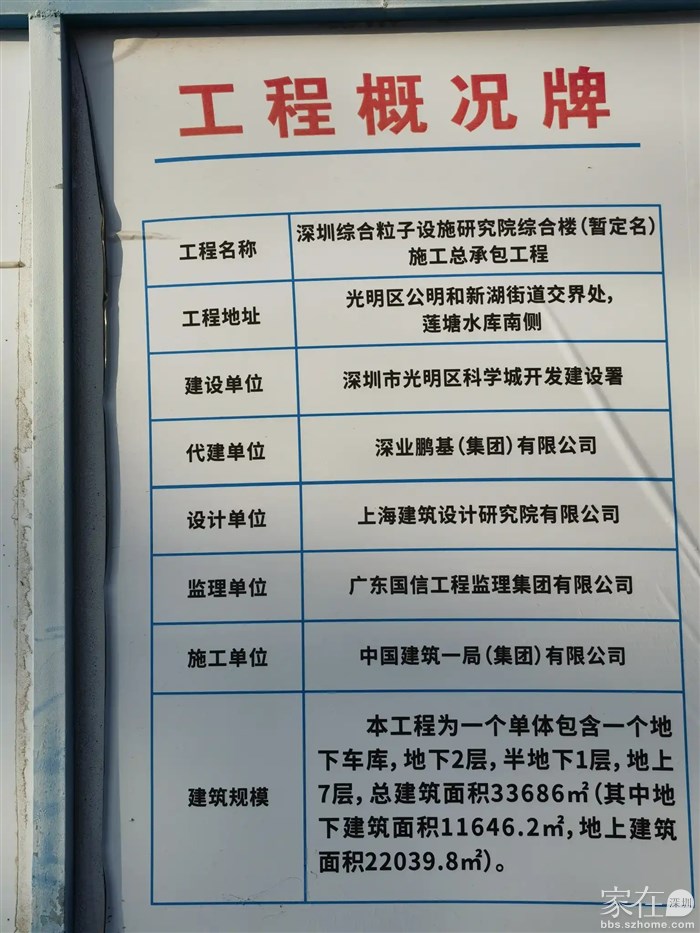 工程概况牌
工程名称
深圳综合粒子设施研究院综合楼(暂定名)
施工总承包工程
工程地址
光明区公明和新湖街道交界处,
莲塘水库南侧
建设单位
深圳市光明区科学城开发建设署
代建单位
深业鹏基(集团)有限公司
设计单位
上海建筑设计研究院有限公司
监理单位
广东国信工程监理集团有限公司
施工单位
中国建筑一局(集团)有限公司
建筑规模
本工程为一个单体包含一个地
下车库,地下2层,半地下1层,地上
7层,总建筑面积33686㎡(其中地
下建筑面积11646.2㎡,地上建筑
面积22039.8㎡)。
家在深圳
bbs.szhome.com